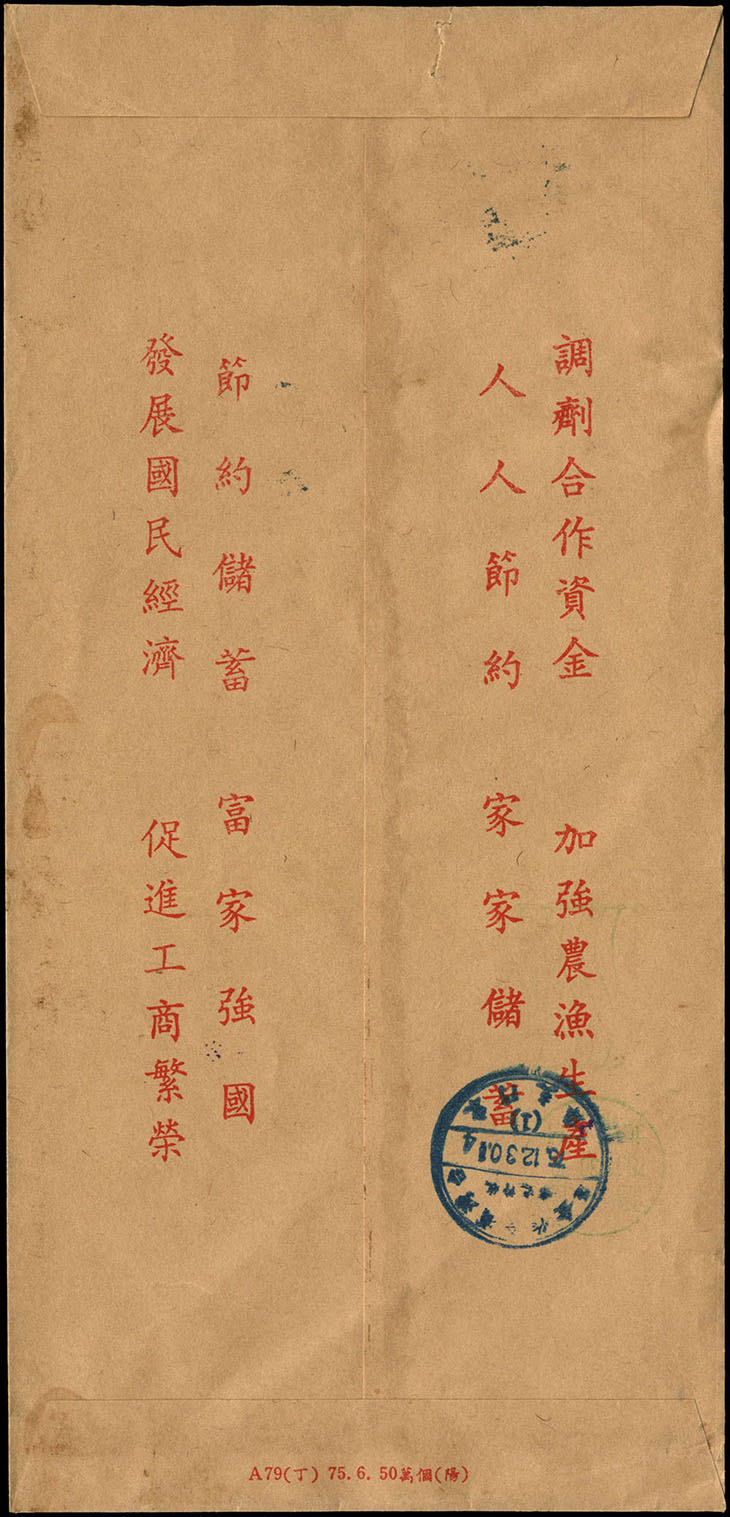 調劑合作資金 加強農漁生產
人人節約 家家儲蓄
節約儲蓄 富家強國
發展國民經濟 促進工商繁榮
(1)
A79(丁) 75.6. 50萬個(陽)